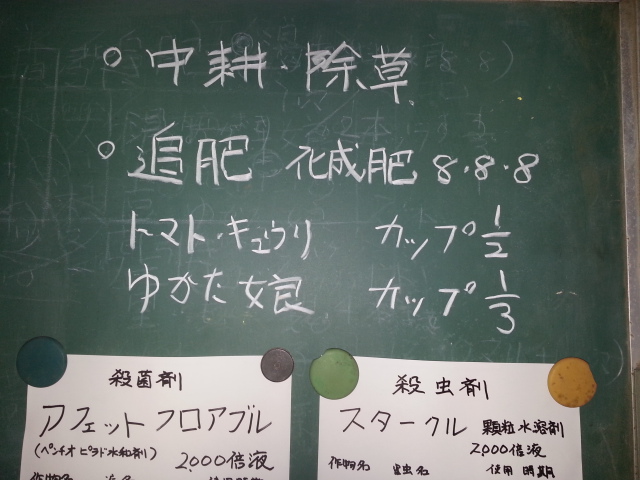 ○ 中耕・除草
○ 追肥 化成肥 8・8・8
トマト・キュウリ カップ 1/2
ゆかた娘 カップ 1/3
殺菌剤
アフェットフロアブル
(ペンチオピラド水和剤) 2,000倍液
作物名
殺虫剤
スタークル 顆粒水溶剤
2,000倍液
作物名 害虫名 使用時期